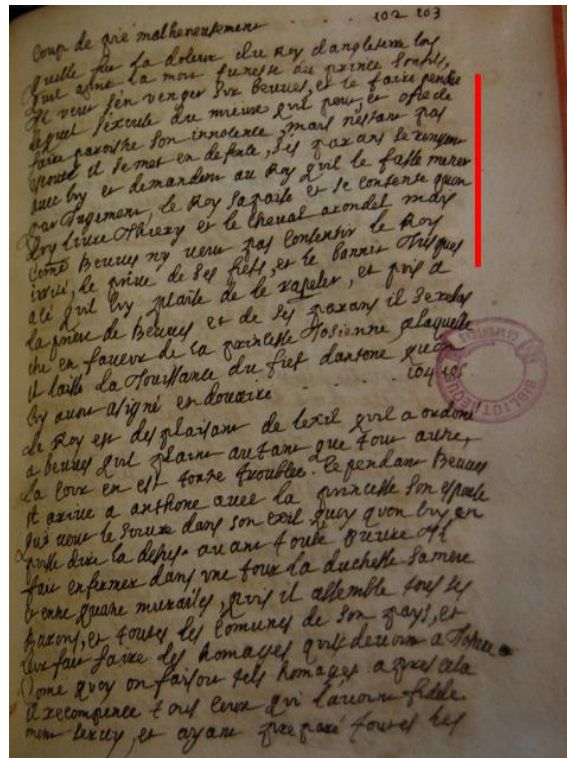 Coup de pié malheureusement 102 103
quelle fut la doleur du Roy dangleterre lors
quil aprit la mort funeste du prince son fils,
il veut sen venger sur Beuves, et le faire pendre
lequel sexcuse du mieux quil peut, et ofre de
faire paroistre son innocence, mais nestant pas
escouté il se met en defence, ses parans se rengent
avec luy et demandent au Roy quil le fasse mener
par Jugement, le Roy sapaise et se contente quon
luy livre Thiezy et le cheval arondel mais
come Beuves ny veut pas consentir le Roy
irrité, le prive de ses fiefs, et le bannit Jusques
a ce quil luy plaise de le rapeler, et puis a
la priere de Beuves et de ses parans il se relas
che en faveur de la princesse Josienne a laquelle
il laisse la Jouissance du fief dantone quon
luy avoit asigné en douaire 104 105
Le Roy est desplaisant de lexil quil a ordoné
a beuves quil plaint autant que tout autre,
La cour en est toute troublée. Cependant Beuves
et arive a anthone avec la princesse son espouse
qui veut le suivre dans son exil quoy quon luy en
puisse dire la desus. avant toute euvre il
fait enfermer dans une tour la duchesse sa mere
entre quatre murailles, puis il assemble tous ses
Barons, et toutes les comunes de son pays, et
leur fait faire les homages quils devoient a
Come quoy on faisoit tels homages apres cela
il recompence tous ceux qui lavoient fidele
ment servy, et ayant preparé toutes les